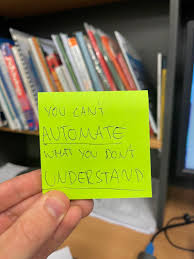 YOU CAN'T
AUTOMATE
WHAT YOU DON'T
UNDERSTAND